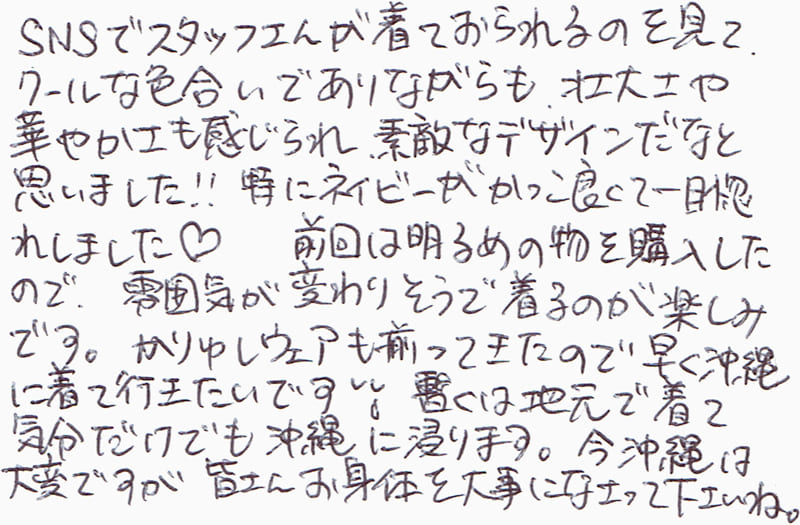 SNSでスタッフさんが着ておられるのを見て、
クールな色合いでありながらも、壮大さや
華やかさも感じられ、素敵なデザインだなと
思いました!! 特にネイビーがかっこ良くて一目惚
れしました♡ 前回は明るめの物を購入した
ので、雰囲気が変わりそうで着るのが楽しみ
です。かりゆしウェアも揃ってきたので早く沖縄
に着て行きたいです!! 暫くは地元で着て
気分だけでも沖縄に浸ります。今沖縄は
大変ですが皆さんお身体を大事になさって下さいね。